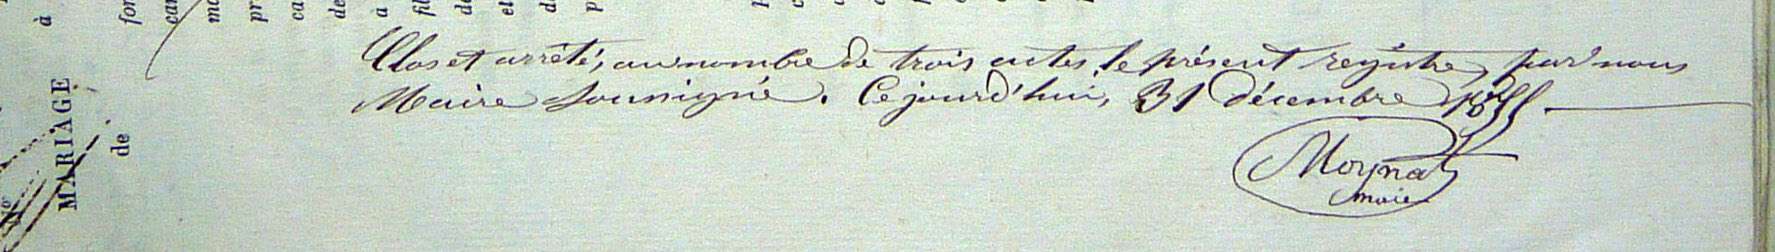 Clos et arrêté, au nombre de trois actes, le présent registre, par nous
Maire soussigné. Ce jourd'hui, 31 décembre
Moynat
maire
MARIAGE
de
à